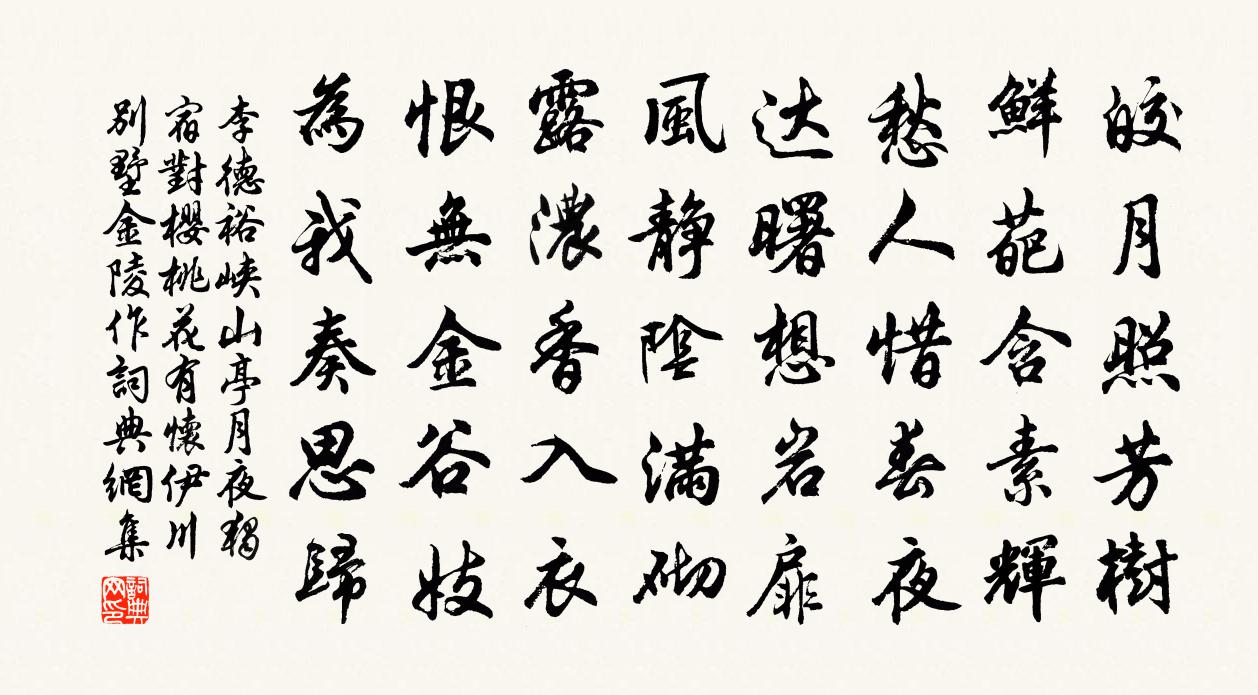 皎月照芳樹
鮮葩含素輝
愁人惜春夜
达曙想岩扉
風靜陰滿砌
露濃香入衣
恨無金谷妓
為我奏思歸
李德裕峽山亭月夜獨
宿對櫻桃花有懷伊川
別墅金陵作詞典網集
詞典网印